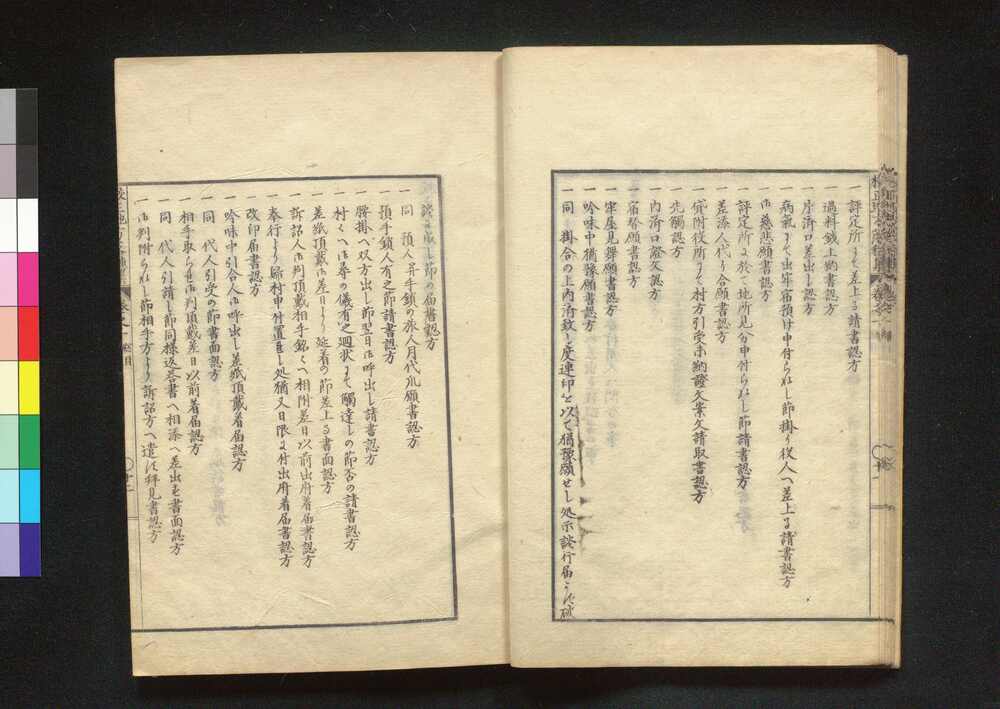 一 評定所にて差上る請書認方
一 過料銭上納書認方
一 片済口差出し認方
一 病気にて出牢宿預け申付られし節掛り役人へ差上る請書認方
一 御慈悲願書認方
一 評定所に於て地所見分申付られし節請書認方
一 差添人代り合願書認方
一 宿附役所にて村方引受未納證文案文請取書認方
一 先觸認方
一 内済口證文認方
一 宿替願書認方
一 牢屋見舞願書認方
一 吟味中猶豫願書認方
一 同 掛合の上内済致し度連印を以て猶豫願せし処示談行届かず破
談に成し節の届書認方
一 同 預人并手鎖の旅人月代爪願書認方
一 預手鎖人有之節請書認方
一 腰掛へ双方出し節翌日御呼出し請書認方
一 村々へ御尋の儀有之廻状にて觸達しの節否の請書認方
一 差紙頂戴御差日より延着の節差上る書面認方
一 訴訟人御判頂戴相手銘々へ相附差日以前出府着届書認方
一 奉行より帰村申付置れし処猶又日限に付出府着届書認方
一 改印届書認方
一 吟味中引合人御呼出し差紙頂戴着届認方
一 同 代人引受の節書面認方
一 相手取られ御判頂戴差日以前着届認方
一 同 代人引請し節同様返答書へ相添へ差出す書面認方
一 御判附られし節相手方より訴訟方へ遣す拝見書認方